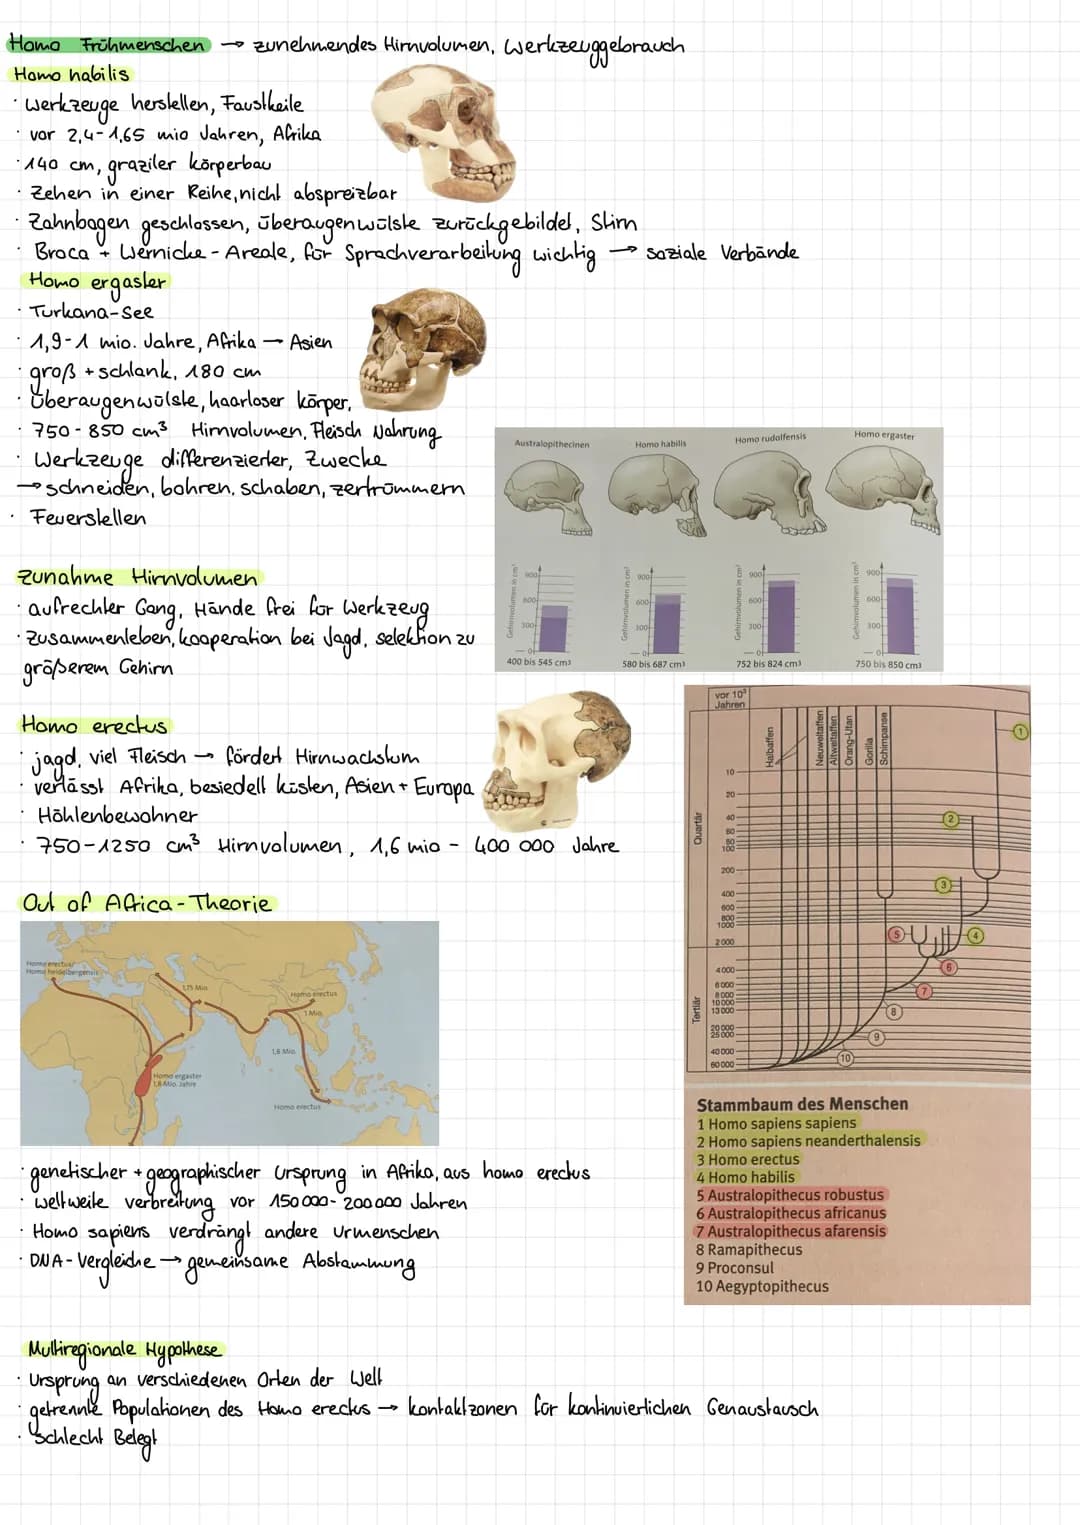 Homo Frühmenschen → zunehmendes Hirnvolumen, Werkzeuggebrauch
Homo habilis
· Werkzeuge herstellen, Faustkeile
· vor 2,4-1,65 mio Jahren, Afrika
· 140 cm, graziler körperbau
· Zehen in einer Reihe, nicht abspreizbar
· Zahnbogen geschlossen, überaugenwülste zurückgebildet, Stirn
· Broca + Wernicke - Areale, für Sprachverarbeitung wichtig → soziale Verbände
Homo ergaster
· Turkana-See
· 1,9-1 mio. Jahre, Afrika → Asien
· groß + schlank, 180 cm
· Überaugenwülste, haarloser körper,
· 750-850 cm³ Hirnvolumen, Fleisch Nahrung
· Werkzeuge differenzierter, Zwecke
→ schneiden, bohren, schaben, zertrümmern
· Feuerstellen
Australopithecinen
Homo habilis
Homo rudolfensis
Homo ergaster
Gehirnvolumen in cm³
900
600
300
0
400 bis 545 cm³
Gehirnvolumen in cm³
900
600
300
0
580 bis 687 cm³
Gehirnvolumen in cm³
900
600
300
0
752 bis 824 cm³
Gehirnvolumen in cm³
900
600
300
0
750 bis 850 cm³
Zunahme Hirnvolumen
· aufrechter Gang, Hände frei für Werkzeug
· Zusammenleben, kooperation bei Jagd, selektion zu
größerem Gehirn
Homo erectus
· jagd, viel Fleisch → fördert Hirnwachstum
· verlässt Afrika, besiedelt küsten, Asien + Europa
· Höhlenbewohner
· 750-1250 cm³ Hirnvolumen, 1,6 mio - 400 000 Jahre
Out of Africa-Theorie
Homo erectus/
Homo heidelbergensis
1,75 Mio.
Homo erectus
1 Mio.
1,8 Mio.
Homo ergaster
1,8 Mio. Jahre
Homo erectus
vor 10³
Jahren
Halbaffen
Neuweltaffen
Altweltaffen
Orang-Utan
Gorilla
Schimpanse
Quartär
Tertiär
10
20
40
60
80
100
200
400
600
800
1000
2 000
4 000
6 000
8 000
10 000
13 000
20 000
25 000
40 000
60 000
1
2
3
4
5
6
7
8
9
10
Stammbaum des Menschen
1 Homo sapiens sapiens
2 Homo sapiens neanderthalensis
3 Homo erectus
4 Homo habilis
5 Australopithecus robustus
6 Australopithecus africanus
7 Australopithecus afarensis
8 Ramapithecus
9 Proconsul
10 Aegyptopithecus
· genetischer + geographischer Ursprung in Afrika, aus homo erectus
· weltweite verbreitung vor 150 000-200 000 Jahren
· Homo sapiens verdrängt andere Urmenschen
· DNA-Vergleiche → gemeinsame Abstammung
Multiregionale Hypothese
· Ursprung an verschiedenen Orten der Welt
· getrennte Populationen des Homo erectus → kontaktzonen für kontinuierlichen Genaustausch
· Schlecht Belegt